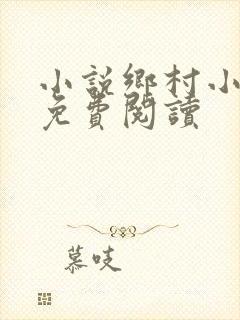 小説鄉村小
免費閱讀
慕吱